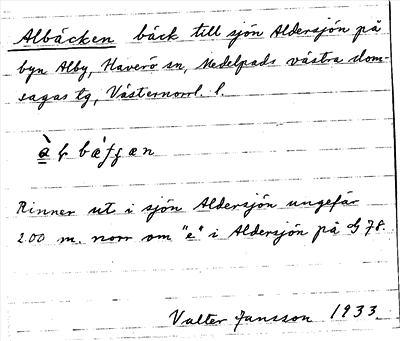 Albäcken bäck till sjön Aldersjön på
byn Alby, Haverö sn, Medelpads västra dom-
sagas tg, Västernorrl. l.
Rinner ut i sjön Aldersjön ungefär
200 m. norr om "e" i Aldersjön på 78.
Valter Jansson 1933.